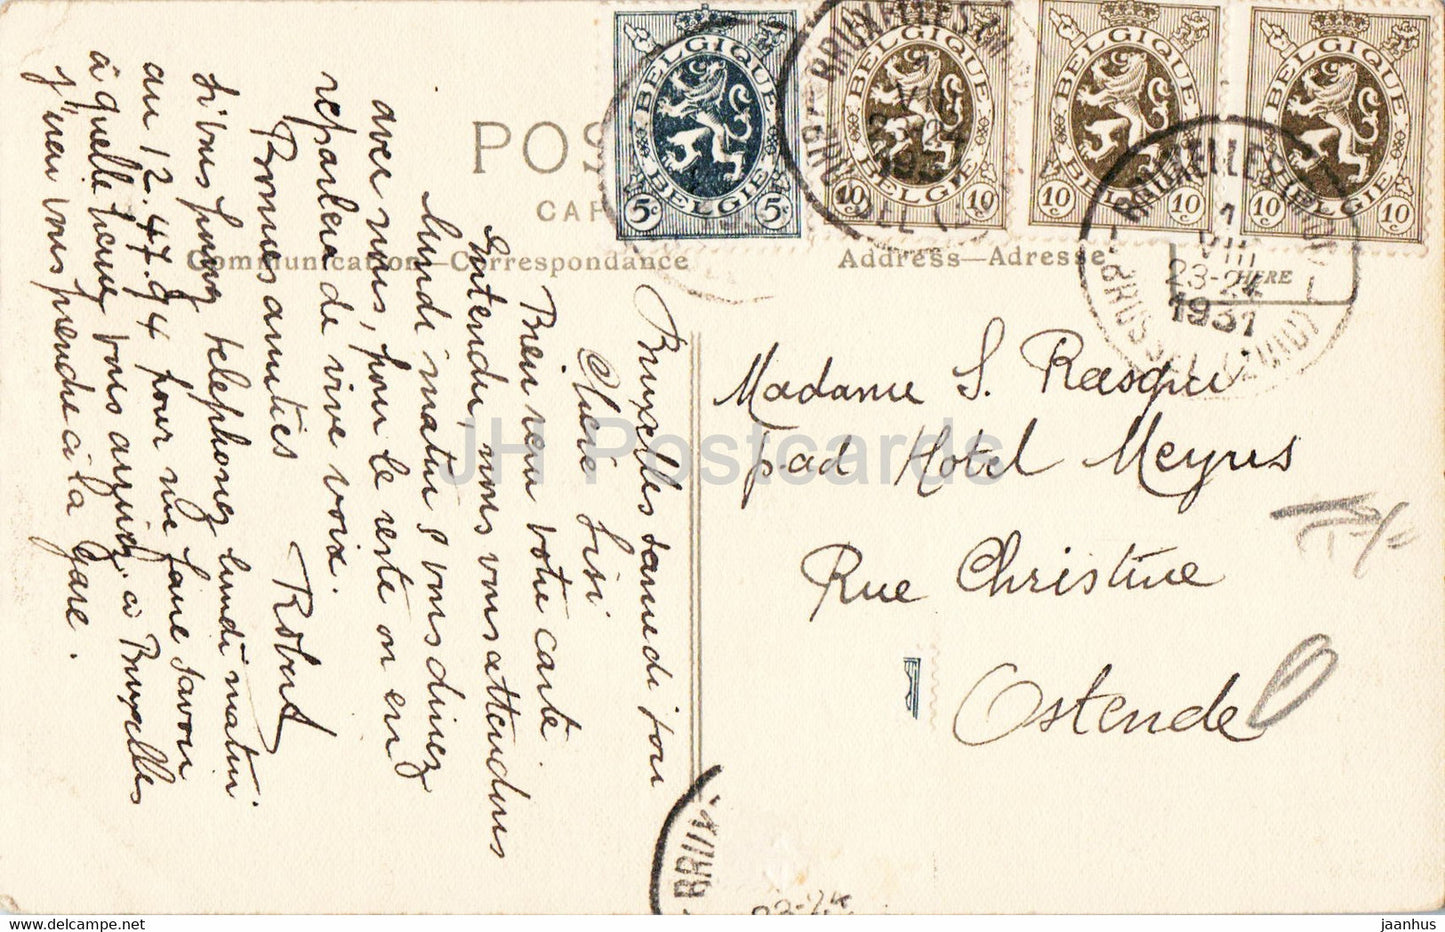 POS
CAR
Communication—Correspondance
Address—Adresse
HERE
BELGIQUE
5c 5c
BELGIE
BELGIQUE
10c 10c
BELGIE
BELGIQUE
10c 10c
BELGIE
BELGIQUE
10c 10c
BELGIE
BRUXELLES (MIDI)
1
VIII
23-24
1931
BRUSSEL (ZUID)
BRUXELLES (MIDI)
1
VIII
23-24
1931
BRUSSEL (ZUID)
Bruxelles samedi soir
Chère Lisi
Bien reçu votre carte
Entendu, nous vous attendons
lundi matin & vous dinez
avec nous, pour le reste on en
reparlera de vive voix.
Bonnes amitiés
Robert
Si vous pouvez telephonez lundi matin
au 12.47.94 pour me faire savoir
à quelle heure vous arrivez à Bruxelles
j'irai vous prendre à la gare.
Madame S.
pad Hotel Meyus
Rue Christine
Ostende
BRUX
23-24
JH Postcards
www.delcampe.net
jaanhus